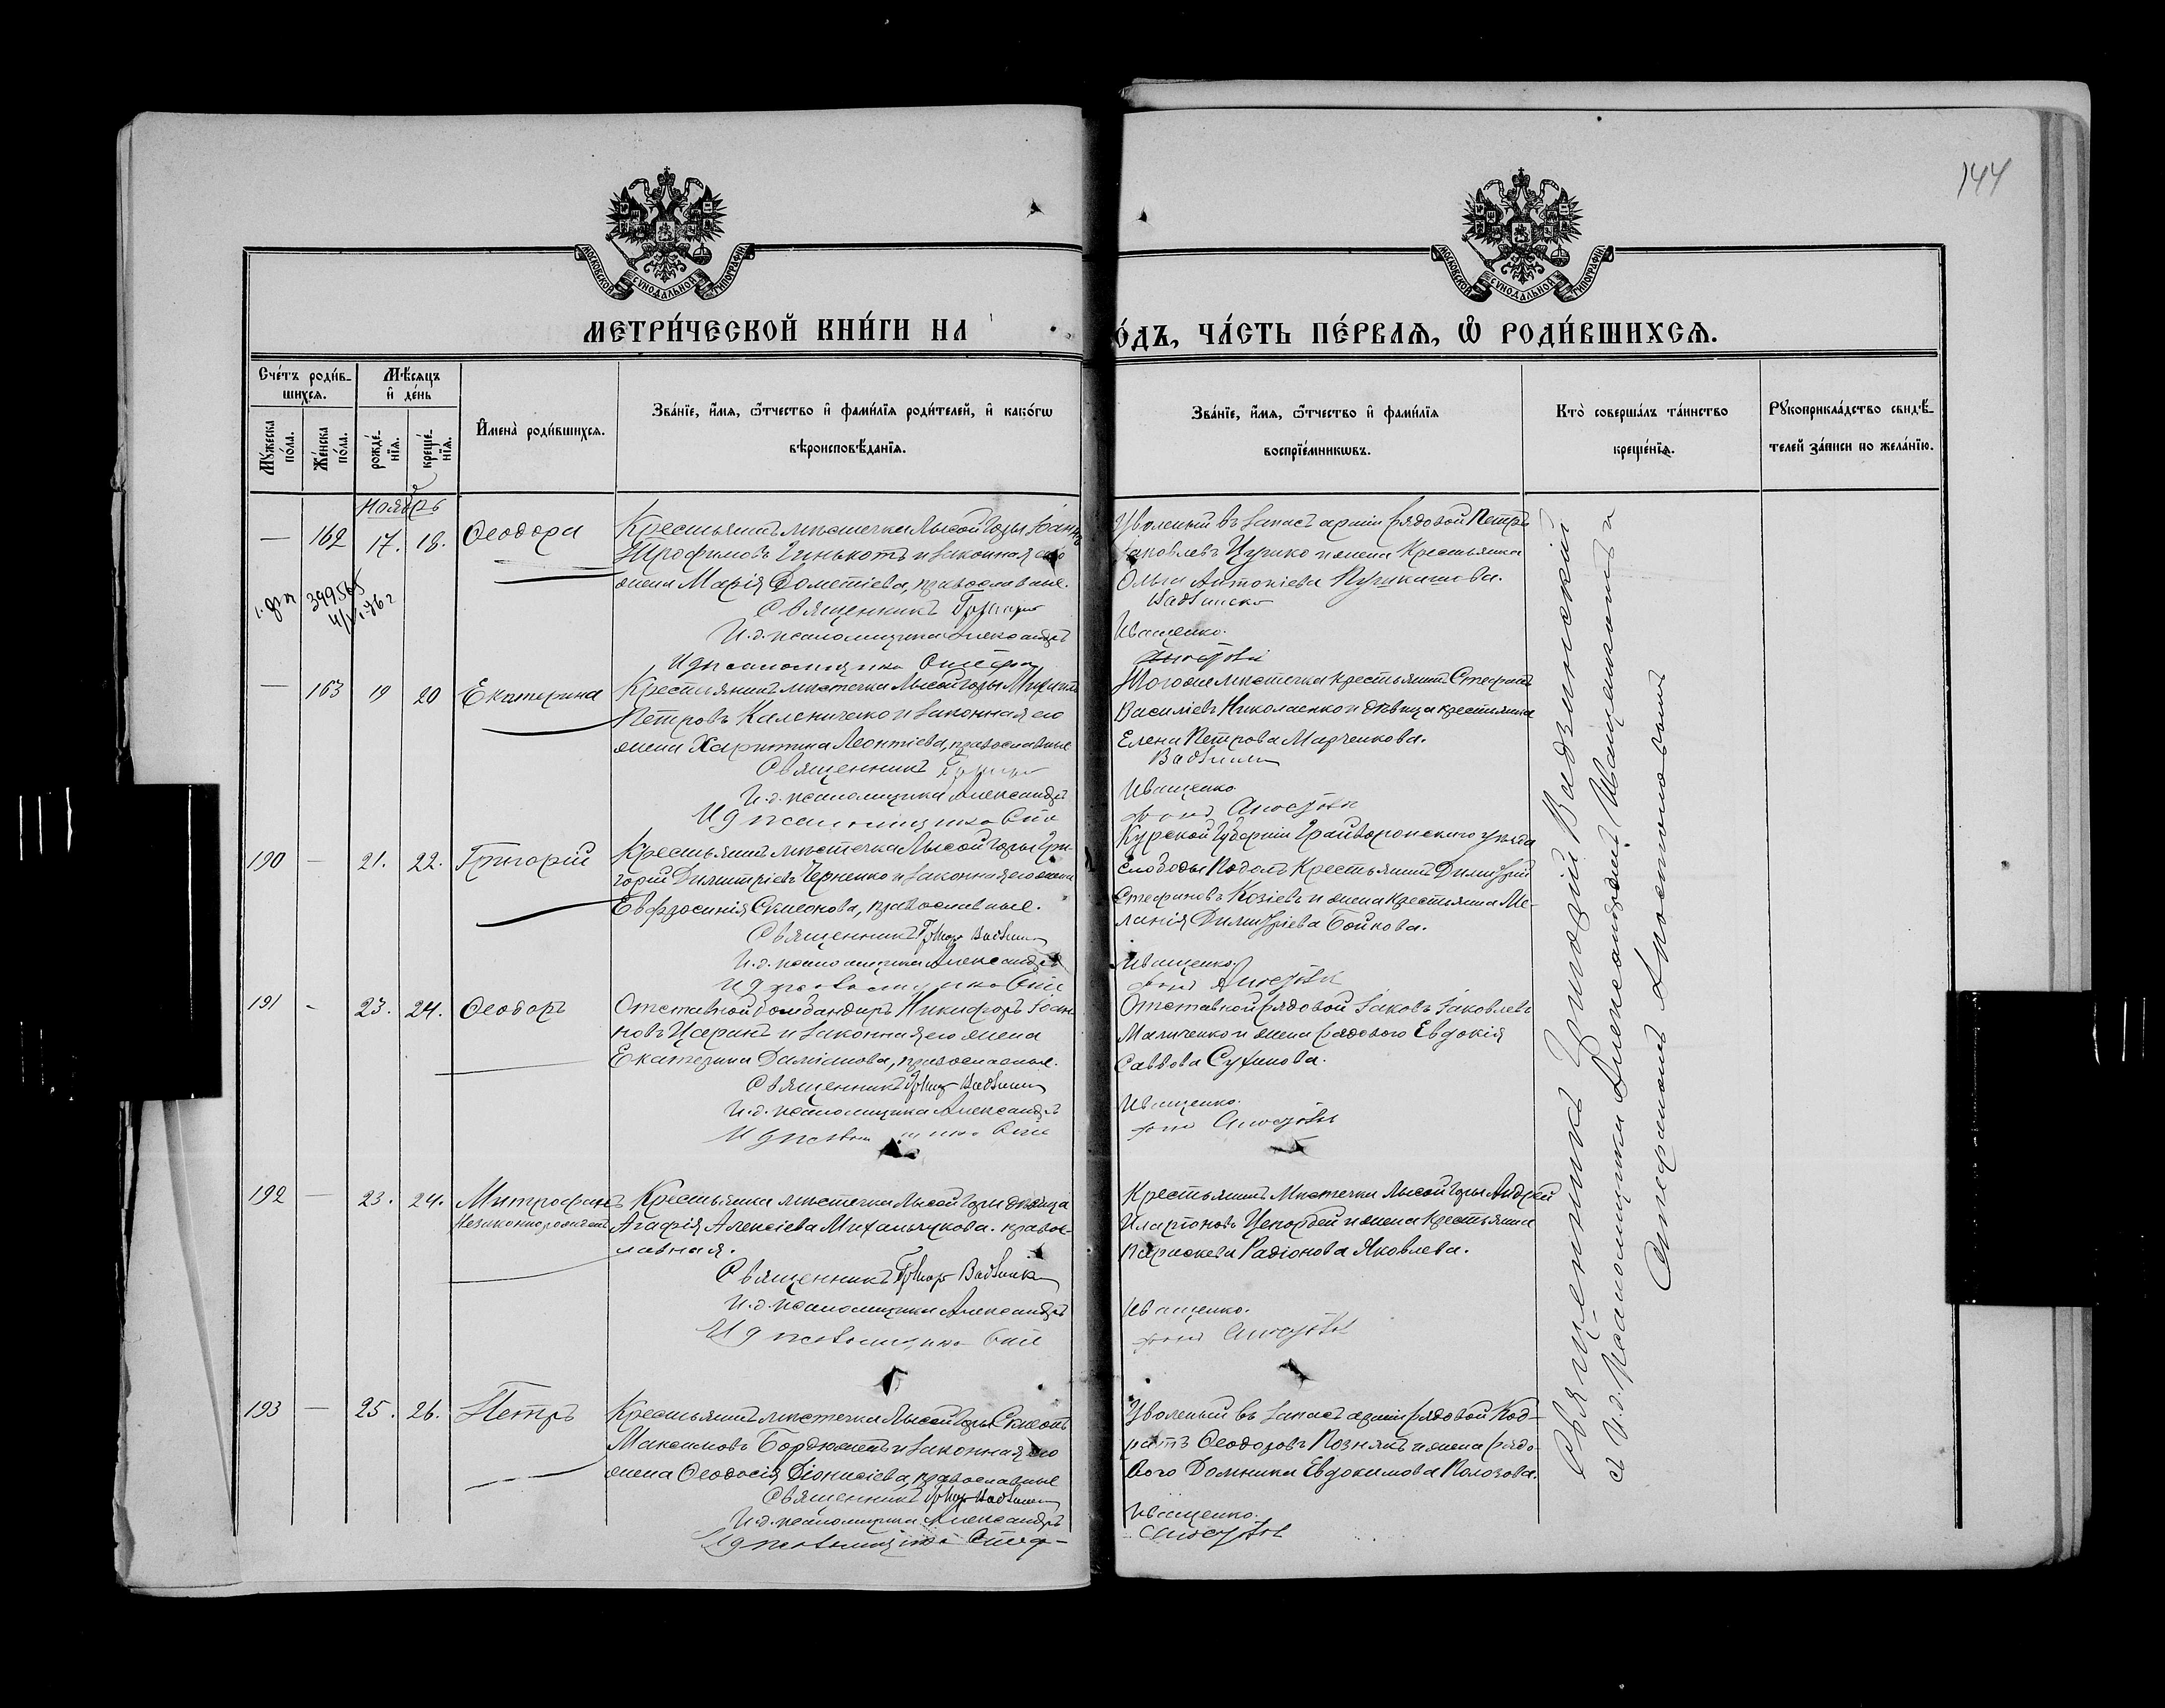 144
МОСКОВСКОЙ СУНОДАЛЬНОЙ ТИПОГРАФІИ
МОСКОВСКОЙ СУНОДАЛЬНОЙ ТИПОГРАФІИ
МЕТРИ́ЧЕСКОЙ КНИ́ГИ НА
О́ДЪ, ЧА́СТЬ ПЕ́РВАѦ, Ѡ РОДИ́ВШИХСѦ.
Сче́тъ роди́в-
шихсѧ.
Мꙋ́жеска по́ла.
Же́нска по́ла.
Мѣ́сяцъ
и҆ де́нь
рожде́-
нїѧ.
креще́-
нїѧ.
И҆мена̀ роди́вшихсѧ.
Зва́нїе, и҆́мѧ, ѻ҆́тчество и҆ фами́лїѧ роди́телей, и҆ како́гѡ
вѣроисповѣ́данїѧ.
Зва́нїе, и҆́мѧ, ѻ҆́тчество и҆ фами́лїѧ
воспрїе́мникѡвъ.
Кто̀ соверша́лъ та́инство
креще́нїѧ.
Рꙋкоприкла́дство свидѣ́-
телей за́писи по жела́нїю.
Ноябрь
— 162 17. 18. Ѳеодора
Крестьянинъ мѣстечка Лысой Горы Іоаннъ
Трофимовъ и законная его
жена Марія Дометіева, православные.
Священникъ Григорій
И.д. псаломщика Александръ
И д псаломщика Стефа
Уволеный въ запасъ арміи рядовой Петръ
Іаковлевъ Цурико и жена Крестьянка
Ольга Антоніева
Вадзинско
Иващенко.
Апостолов
399585
— 163 19 20 Екатерина
Крестьянинъ мѣстечка Лысой Горы
Петровъ Калениченко и законная его
жена Харитина Леонтіева, православные
Священникъ Григорій
И.д. псаломщика Александръ
И д псаломщика Сте
Тогоже мѣстечка крестьянинъ Стефанъ
Василіевъ Николаенко и дѣвица крестьянка
Елена Петрова Марченкова.
Вадзинск
Иващенко
фанъ Апостолов
190 — 21. 22. Григорій
Крестьянинъ мѣстечка Лысой Горы Гри-
горій Димитріевъ Черненко и законная его жена
Евфросинія Сѵмеонова, православные.
Священникъ Григор Вадзинск
И.д. псаломщика Александръ
И д псаломщика Сте
Курской Губерніи Грайворонского уѣзда
Слободы Подолъ Крестьянинъ Димитрій
Стефановъ Козіевъ и жена крестьянина Ме-
ланія Димитріева Бойкова.
Иващенко.
фанъ Апостолов
191 - 23. 24. Ѳеодоръ
Отставной бомбандиръ Никифоръ Іоан-
новъ Царанъ и законная его жена
Екатерина Даміанова, православные.
Священникъ Григор Вадзинск
И.д. псаломщика Александръ
И д псаломщика Сте
Отставной рядовой Іаковъ Іаковлевъ
Маличенко и жена рядового Евдокія
Саввова Сухинова.
Иващенко.
фанъ Апостолов
192 — 23. 24. Митрофанъ
Незаконнорожденъ
Крестьянка мѣстечка Лысой Горы дѣвица
Агафія Алексіева Михальчукова. правос-
лавная.
Священникъ Григор Вадзинск
И.д. псаломщика Александръ
И д псаломщика Сте
Крестьянинъ Мѣстечка Лысой Горы Андрей
Иларіоновъ и жена крестьянина
Параскева Радіонова Яковлева.
Иващенко.
фанъ Апостолов
193 — 25. 26. Петръ
Крестьянинъ мѣстечка Лысой Горы Сѵмеонъ
Максимовъ Бордюженъ и законная его
жена Ѳеодосія Діонисіева, православные
Священникъ Григор Вадзинск
И.д. псаломщика Александръ
И д псаломщика Стеф-
Уволеный въ запасъ арміи рядовой Код-
ратъ Ѳеодоровъ Познякъ и жена рядо-
вого Домника Евдокимова Полозова.
Иващенко.
Апостолов
Священникъ Григорій Вадзинскій
съ И.д. Псаломщика Александромъ Иващенкомъ и
Стефаномъ Апостоловымъ